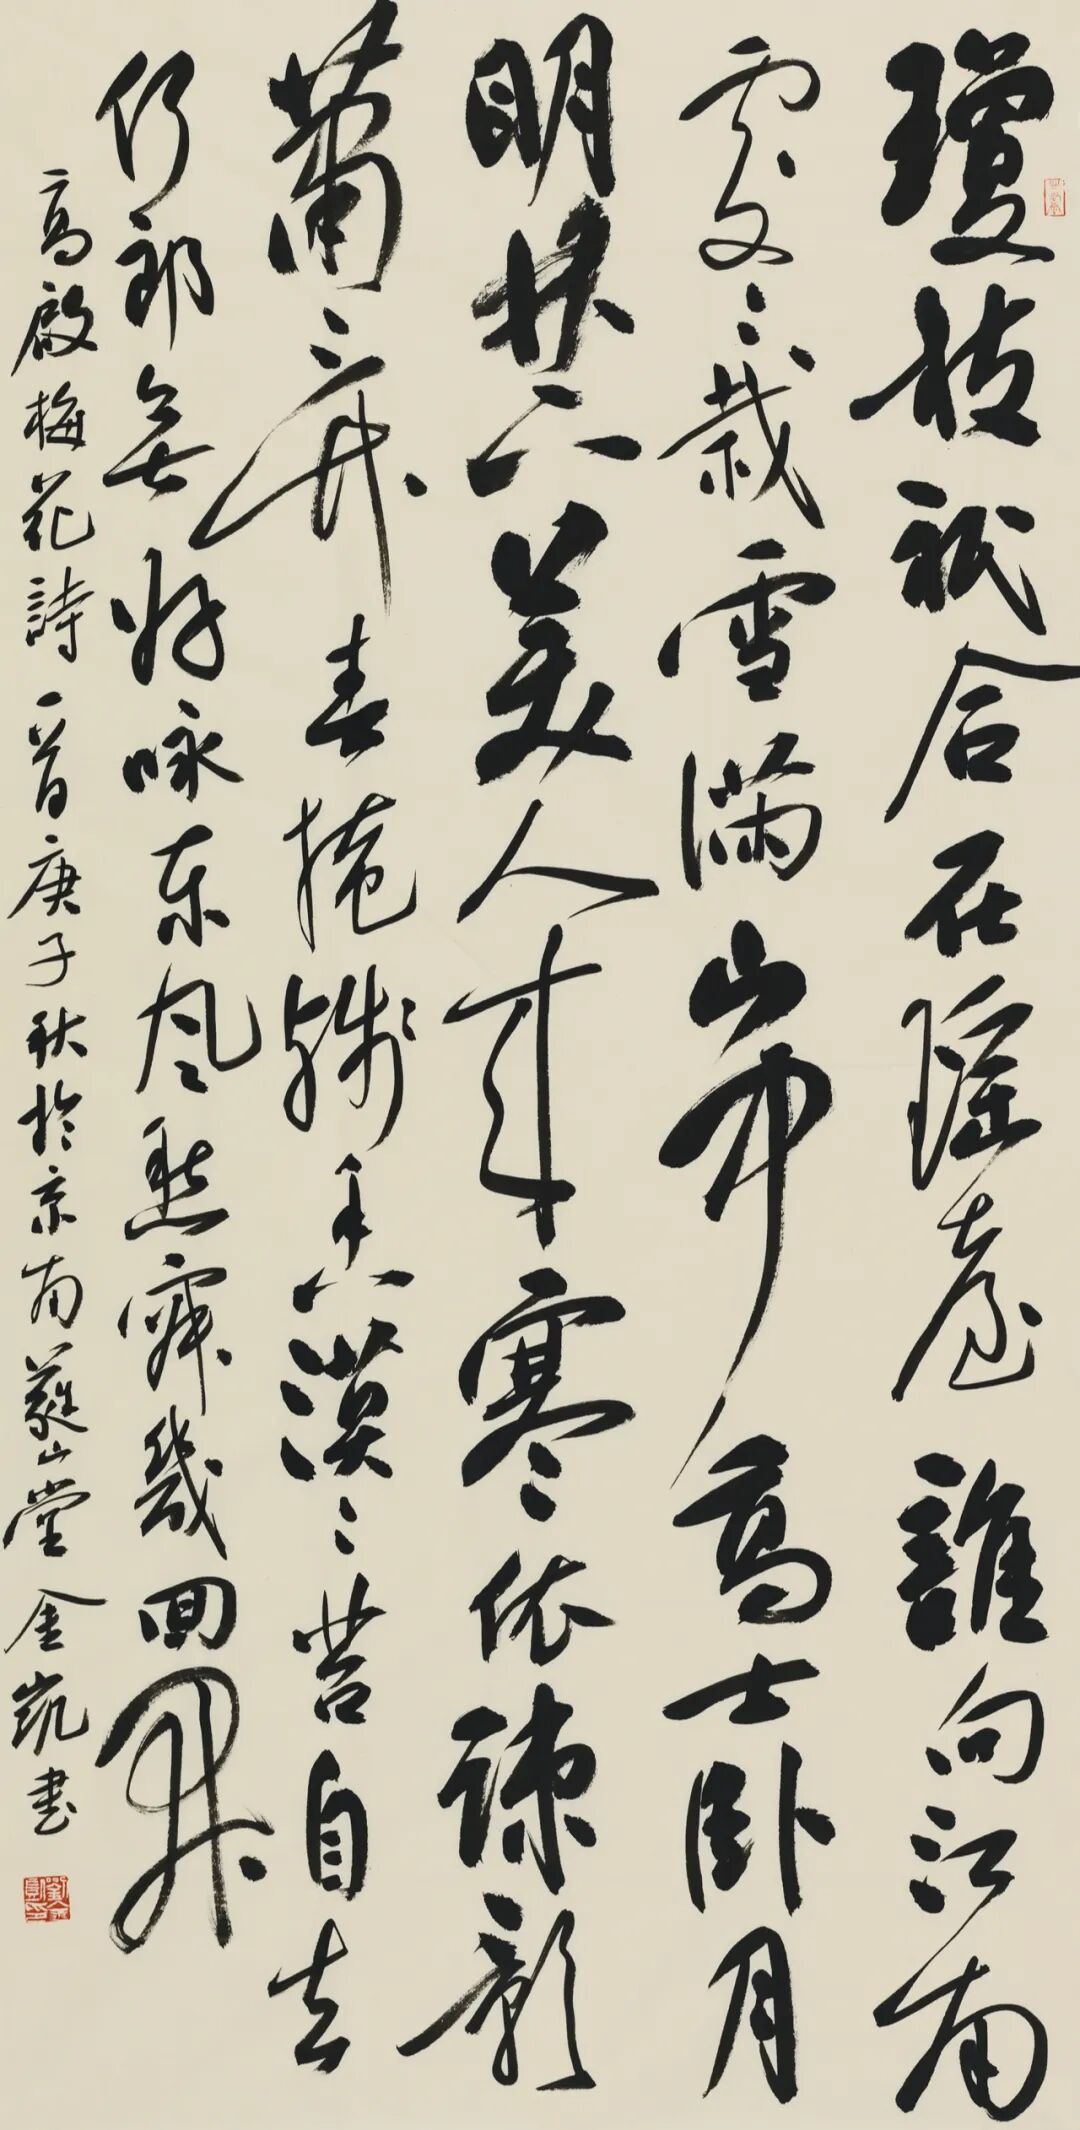 瓊枝祇合在瑤臺誰向江南
處々栽雪滿山中高士卧月
明林下美人來寒依疎影
蕭々竹春掩殘香漠々苔自去
何郎無好咏東風愁寂幾回開
高啟梅花詩一首庚子秋於京南山堂金凱書
劉金凱印